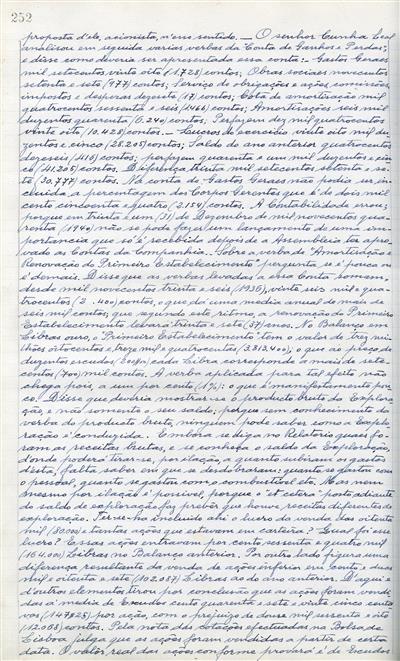 252
proposta d'ele, acionista, n'esse sentido. — O senhor Cunha Leal
analisou em seguida varias verbas da Conta de Ganhos e Perdas,
e disse como deveria ser apresentada essa conta: - Gastos Geraes
mil setecentos vinte oito (1.728) contos; Obras sociaes novecentos
setenta e sete (977) contos; Serviço de obrigações e ações, comissões,
impostos e despesas dezesete (17) contos; Cota de amortização mil
quatrocentos sessenta e seis (1466) contos; Amortizações seis mil
duzentos quarenta (6.240) contos; Perfazem dez mil quatrocentos
vinte oito, (10.428) contos. — Lucros do exercicio vinte oito mil du-
zentos e cinco (28.205) contos; Saldo do ano anterior quatrocentos
dezeseis (416) contos; perfazem quarenta e um mil duzentos e cin-
co (41.205) contos. Diferença trinta mil setecentos setenta e se-
te (30.777) contos. Na conta de Gastos Geraes não podia ser in-
cluida a percentagem dos Corpos Gerentes que é de dois mil
cento cincoenta e quatro (2.154) contos. A Contabilidade errou;
porque em trinta e um (31) de Dezembro de mil novecentos qua-
renta (1940) não se pode fazer um lançamento de uma im-
portancia que só é recebida depois de a Assembleia ter apro-
vado as Contas da Companhia. Sobre a verba de "Amortização e
Renovação do Primeiro Estabelecimento" pergunta se é pouca ou
é demais. Disse que as verbas levadas a essa Conta somam,
desde mil novecentos trinta e seis (1936), vinte seis mil e qua-
trocentos (2 .400) contos, o que dá uma media anual de mais de
seis mil contos; que segundo este ritmo, a renovação do Primeiro
Estabelecimento levará trinta e sete (37) anos. No Balanço em
Libras ouro, o Primeiro Estabelecimento tem o valor de tres mi-
lhões oitocentos e treze mil e quatrocentas (3.813.400), o que ao preço de
duzentos escudos (200$00) cada Libra corresponde a mais de sete-
centos (700) mil contos. A verba aplicada para tal efeito não
chega pois, a um por cento (1%); o que é manifestamente pou-
co. Disse que deveria mostrar-se o producto bruto da Explora-
ção, e não somente o seu saldo; porque sem conhecimento da
verba do producto bruto, ninguem pode saber como a Explo-
ração é conduzida. Embora se diga no Relatorio quaes fo-
ram as receitas brutas, e se conheça o saldo da Exploração,
d'onde podera tirar-se, por ilação, a quanto subiram os gastos
d'esta, falta saber em que se desdobraram: quanto se gastou com
o pessoal, quanto se gastou com o combustivel etc. Mas nem
mesmo por ilação é possivel, porque o "et cetera" posto adiante
do saldo de exploração faz prever que houve receitas diferentes da
exploração. Ter-se-ha incluido ahi o lucro da venda das oitenta
mil (80.000) e tantas ações que estavam em carteira? Qual foi esse
lucro? Essas ações entraram por cento sessenta e quatro mil
(164.000) Libras no Balanço anterior. Por outro lado figura uma
diferença resultante da venda de ações inferior em cento e duas
mil e oitenta e sete (102.087) Libras ao do ano anterior. D'aqui e
d'outros elementos tirou por conclusão que as ações foram vendi-
das á media de Escudos cento quarenta e sete e vinte cinco centa-
vos (147$25) por ação, com o prejuizo de doze mil sessenta e oito
(12.068) contos. Pela nota das Cotações efectuadas na Bolsa de
Lisboa julga que as ações foram vendidas a partir de certa
data. O valor real das ações conforme provará é de Escudos